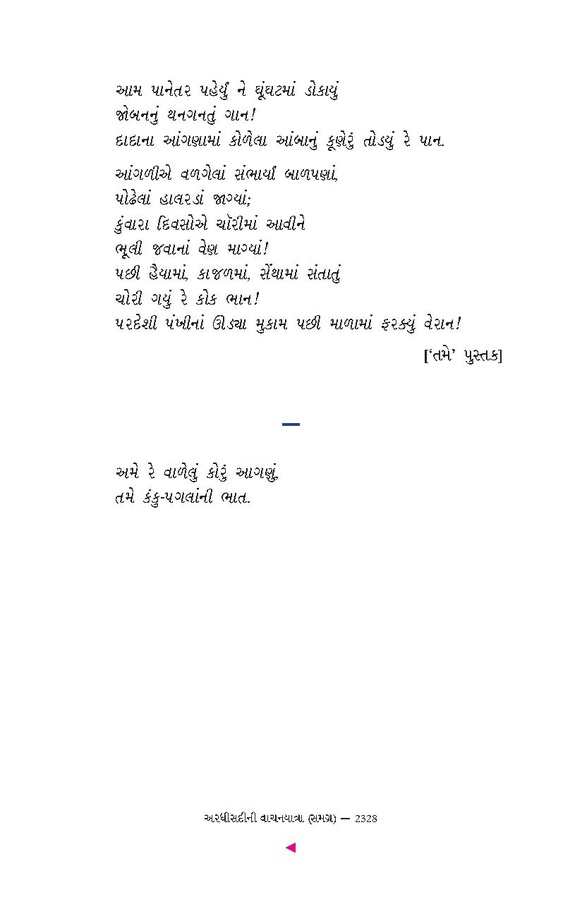 આમ પાનેતર પહેર્યું ને ઘૂંઘટમાં ડોકાયું
જોબનનું થનગનતું ગાન!
દાદાના આંગણામાં કોળેલા આંબાનું કૂણેરું તોડયું રે પાન.
આંગળીએ વળગેલાં સંભાર્યાં બાળપણાં,
પોઢેલાં હાલરડાં જાગ્યાં;
કુંવારા દિવસોએ ચૉરીમાં આવીને
ભૂલી જવાનાં વેણ માગ્યાં!
પછી હૈયામાં, કાજળમાં, સેંથામાં સંતાતું
ચોરી ગયું રે કોક ભાન!
પરદેશી પંખીનાં ઊડ્યા મુકામ પછી માળામાં ફરક્યું વેરાન!
[‘તમે’ પુસ્તક]
અમે રે વાળેલું કોરું આગણું,
તમે કંકુ-પગલાંની ભાત.
અરધીસદીની વાચનયાત્રા (સમગ્ર) — 2328